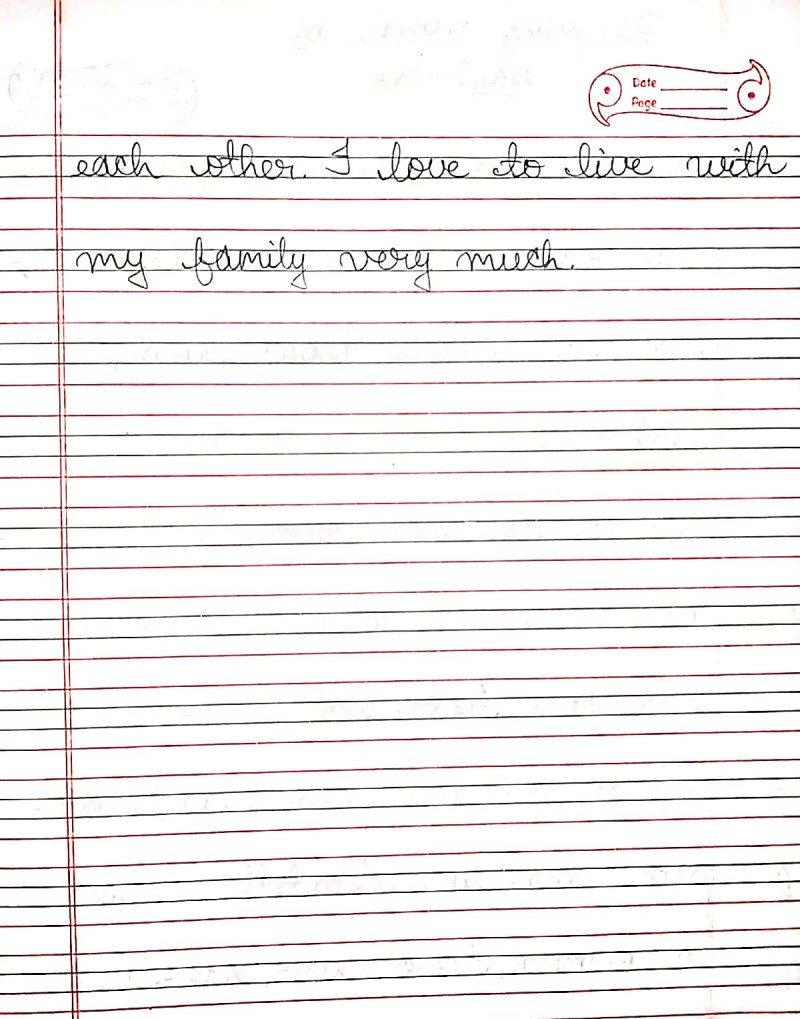 Date
Page
each other. I love to live with
my family very much.